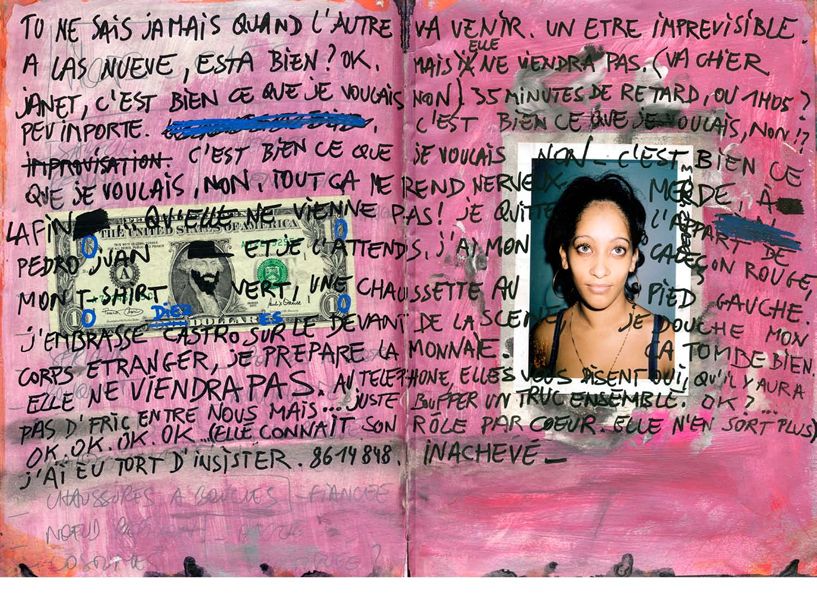 TU NE SAIS JAMAIS QUAND L'AUTRE VA VENIR. UN ETRE IMPREVISIBLE.
A LAS NUEVE, ESTA BIEN? OK. MAIS ELLE NE VIENDRA PAS. (VA CHIER
JANET, C'EST BIEN CE QUE JE VOULAIS NON) 35 MINUTES DE RETARD, OU 1H05?
PEU IMPORTE. C'EST BIEN CE QUE JE VOULAIS, NON!?
IMPROVISATION. C'EST BIEN CE QUE JE VOULAIS NON_ C'EST BIEN CE
QUE JE VOULAIS, NON. TOUT ÇA ME REND NERVEUX. MERDE, À
LA FIN QU'ELLE NE VIENNE PAS! JE QUITTE L'APPART DE
THE UNITED STATES OF AMERICA
PEDRO JUAN ET JE L'ATTENDS, J'AI MON CALEÇON ROUGE,
MON T-SHIRT VERT, UNE CHAUSSETTE AU PIED GAUCHE.
DIEU ES
DOLLAR
J'EMBRASSE CASTRO SUR LE DEVANT DE LA SCENE, JE DOUCHE MON
CORPS ETRANGER, JE PREPARE LA MONNAIE. ÇA TOMBE BIEN.
ELLE NE VIENDRA PAS. AU TELEPHONE, ELLES VOUS DISENT OUI, QU'IL Y AURA
PAS D'FRIC ENTRE NOUS MAIS... JUSTE BUFFER UN TRUC ENSEMBLE. OK?...
OK. OK. OK. OK... (ELLE CONNAÎT SON RÔLE PAR COEUR. ELLE N'EN SORT PLUS)
J'AI EU TORT D'INSISTER. 8614848. INACHEVÉ_
CHAUSSURES A BOUCLES - FIANCÉE
NOEUD